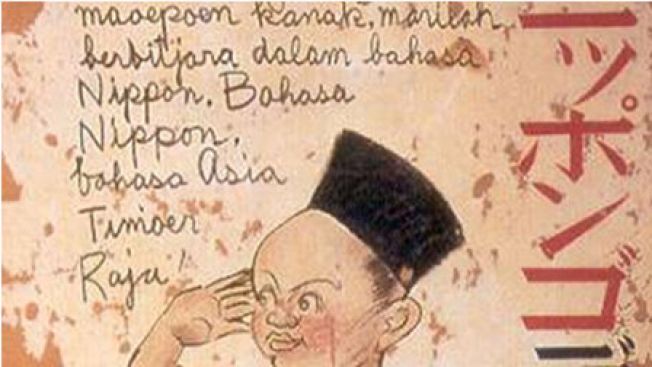 maoepoen kanak, marilah
berbitjara dalam bahasa
Nippon. Bahasa
Nippon,
bahasa Asia
Timoer
Raja!
ニッポンゴ